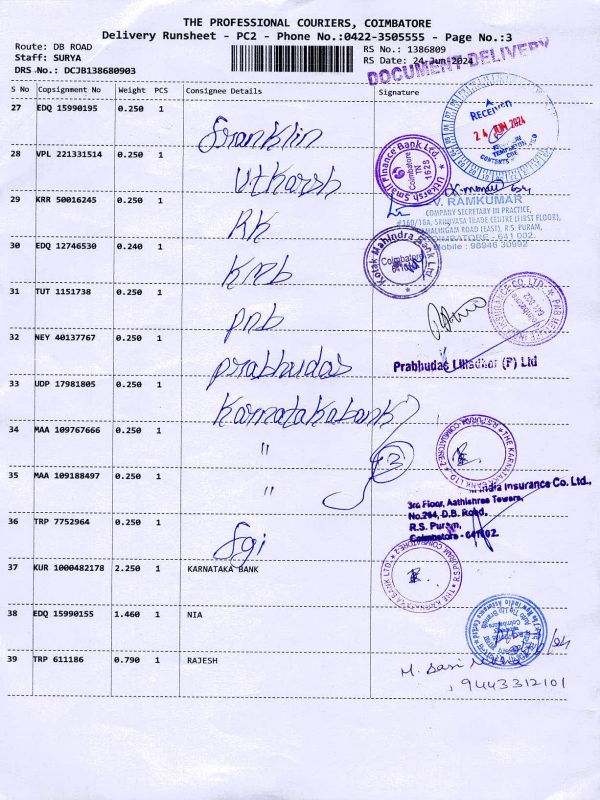 THE PROFESSIONAL COURIERS, COIMBATORE
Delivery Runsheet - PC2 - Phone No.:0422-3505555 - Page No.:3
Route: DB ROAD RS No.: 1386809
Staff: SURYA RS Date: 24-Jun-2024
DRS No.: DCJB138680903
DOCUMENT DELIVERY
S No Copsignment No Weight PCS Consignee Details Signature
27 EDQ 15990195 0.250 1 Franklin
RECEIVED
24 JUN 2024
28 VPL 221331514 0.250 1 Utkarsh
Utkarsh Small Finance Bank Ltd.
Coimbatore
TN
1628
V. RAMKUMAR
COMPANY SECRETARY IN PRACTICE,
R.S. PURAM,
COIMBATORE - 641 002.
Mobile : 98946 30992
29 KRR 50016245 0.250 1 KK
30 EDQ 12746530 0.240 1 KMB
Kotak Mahindra Bank Ltd
Coimbatore
31 TUT 1151738 0.250 1 pnb
32 NEY 40137767 0.250 1 prabhudas
Prabhudas Lilladher (P) Ltd
33 UDP 17981805 0.250 1 Karnatakabank
34 MAA 109767666 0.250 1 "
3
THE KARNATAKA BANK LTD. R.S.PURAM, COIMBATORE-2
35 MAA 109188497 0.250 1 "
India Insurance Co. Ltd.,
3rd Floor, Aathishree Towers,
No.264, D.B. Road,
R.S. Puram,
Coimbatore - 641002.
36 TRP 7752964 0.250 1 Sgi
37 KUR 1000482178 2.250 1 KARNATAKA BANK
THE KARNATAKA BANK LTD. R.S.PURAM, COIMBATORE-2
38 EDQ 15990155 1.460 1 NIA
39 TRP 611186 0.790 1 RAJESH
9443312101